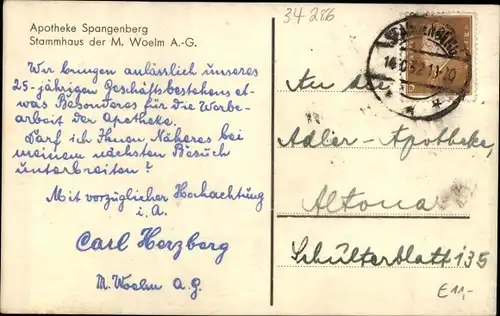 Apotheke Spangenberg
Stammhaus der M. Woelm A.-G.
Wir bringen anlässlich unseres
25-jährigen Geschäftsbestehens et-
was Besonderes für die Werbe-
arbeit der Apotheke.
Darf ich Ihnen Näheres bei
meinem nächsten Besuch
unterbreiten?
Mit vorzüglicher Hochachtung
i.A.
Carl Herzberg
M. Woelm A.G.
34286
An die
Adler-Apotheke,
Altona
Schulterblatt 135
E11,-